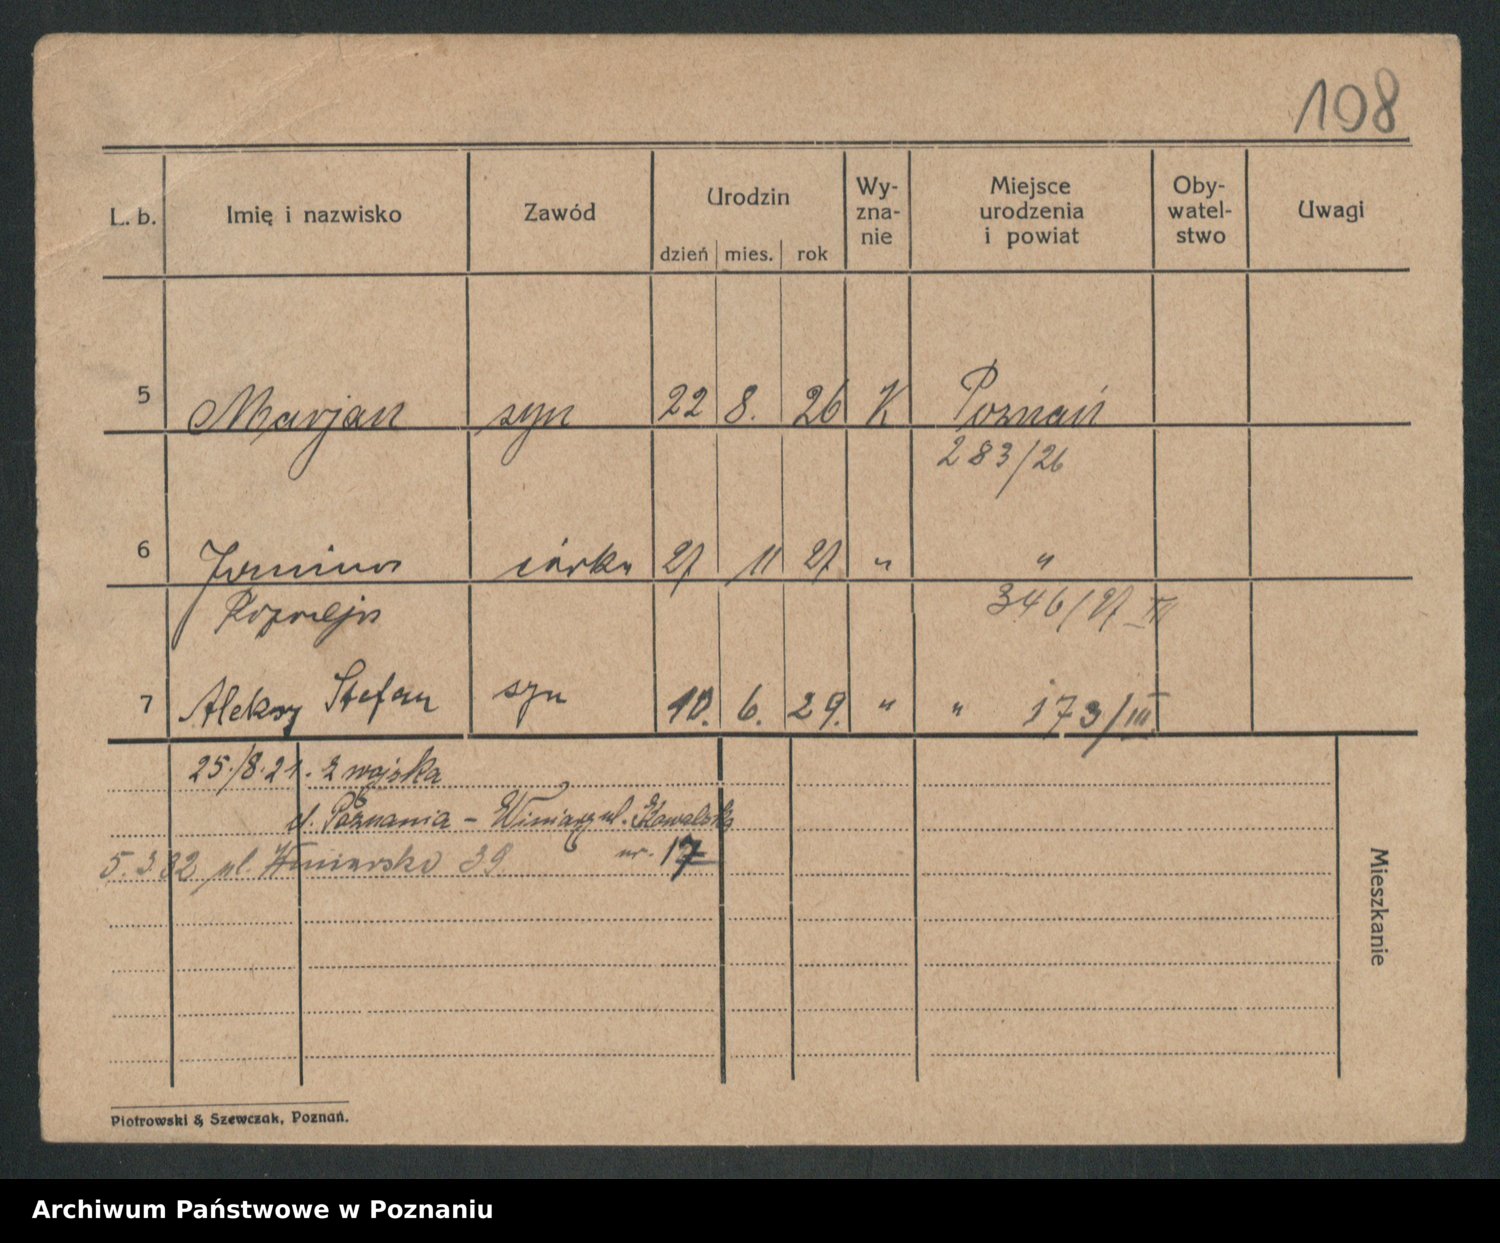 108
L. b. Imię i nazwisko Zawód Urodzin dzień mies. rok Wy- zna- nie Miejsce urodzenia i powiat Oby- watel- stwo Uwagi
5 Marjan syn 22 8. 26 K Poznań
283/26
6 Janina córka 27 11 27 " "
346/27 XI
7 Aleksy Stefan syn 10. 6. 29. " " 173/III
25./8.21. z wojska
Poznania - Winiary ul.
5.3.32 ul. Winiarska 39. nr. 17
Mieszkanie
Piotrowski & Szewczak, Poznań.
Archiwum Państwowe w Poznaniu